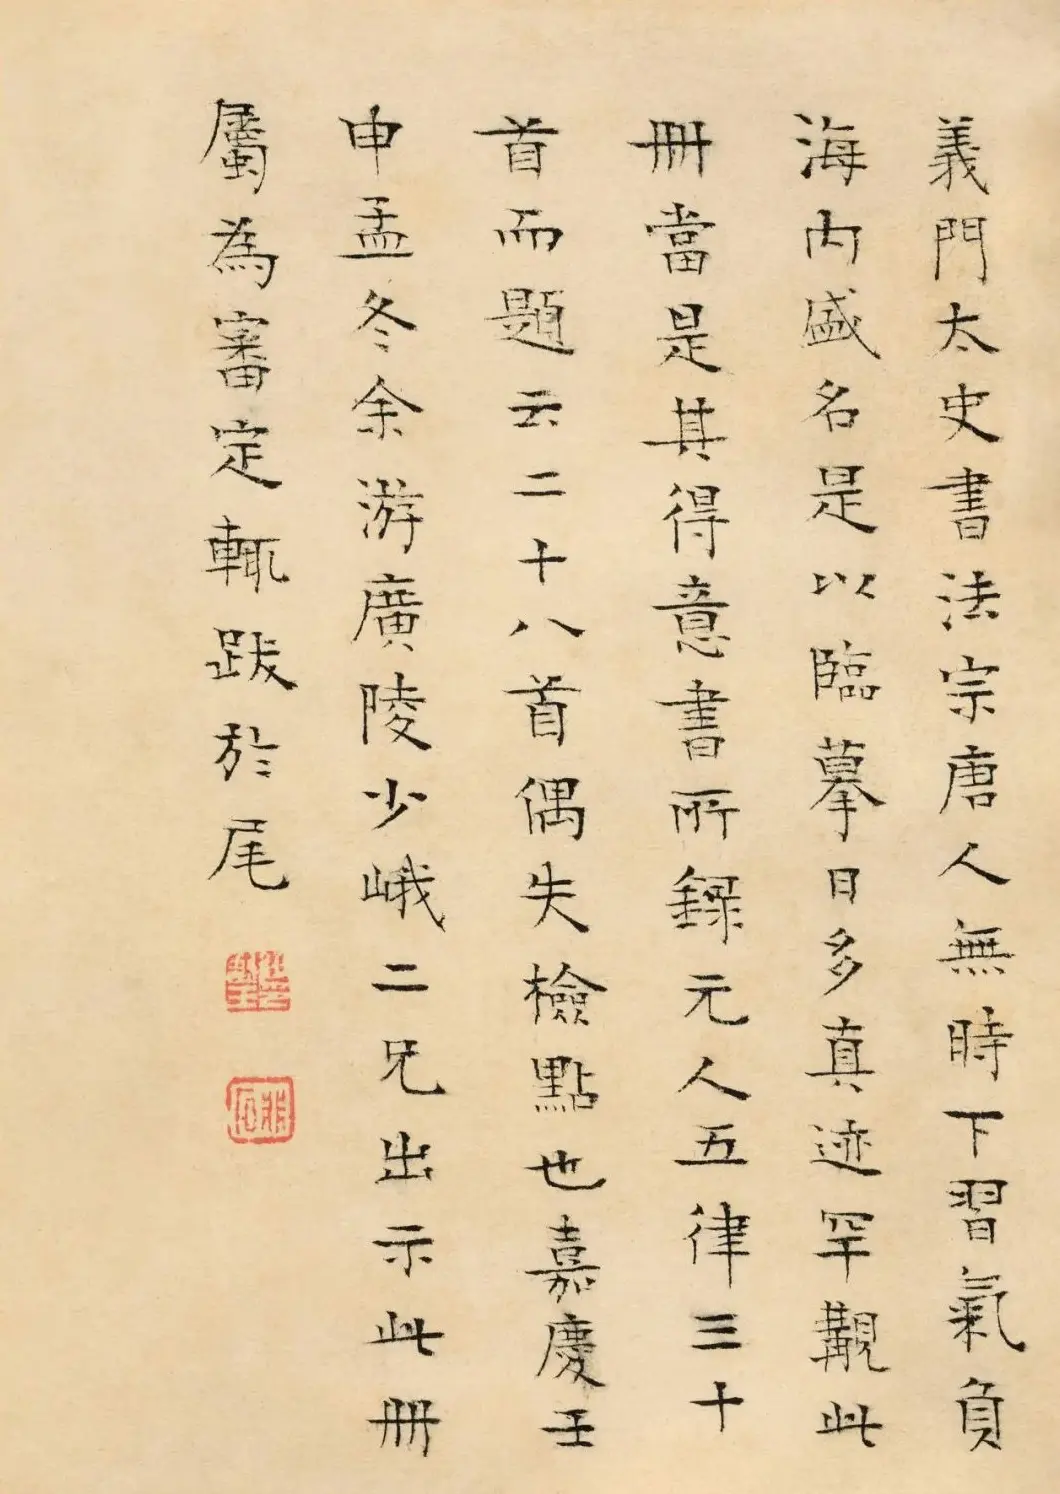 義門太史書法宗唐人無時下習氣負
海內盛名是以臨摹日多真迹罕覯此
冊當是其得意書所錄元人五律三十
首而題云二十八首偶失檢點也嘉慶壬
申孟冬余游廣陵少峨二兄出示此冊
屬為審定輒跋於尾